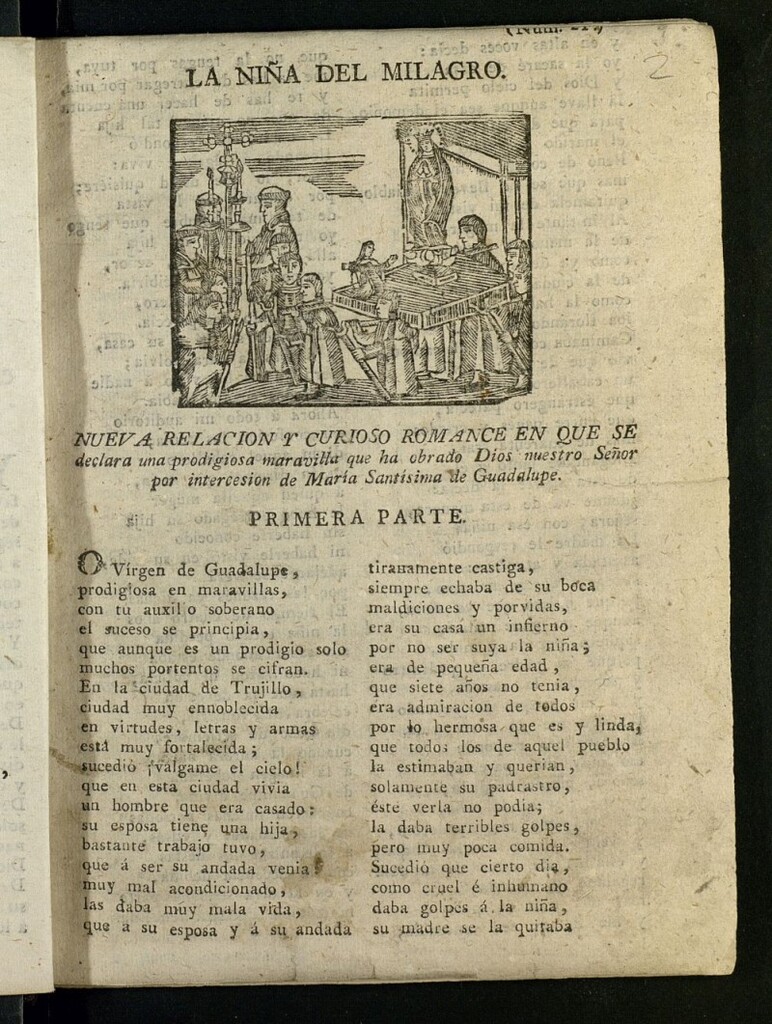 2
LA NIÑA DEL MILAGRO.
NUEVA RELACION Y CURIOSO ROMANCE EN QUE SE
declara una prodigiosa maravilla que ha obrado Dios nuestro Señor
por intercesion de María Santísima de Guadalupe.
PRIMERA PARTE.
O Vírgen de Guadalupe,
prodigiosa en maravillas,
con tu auxilio soberano
el suceso se principia,
que aunque es un prodigio solo
muchos portentos se cifran.
En la ciudad de Trujillo,
ciudad muy ennoblecida
en virtudes, letras y armas
está muy fortalecida;
sucedió ¡válgame el cielo!
que en esta ciudad vivia
un hombre que era casado:
su esposa tiene una hija,
bastante trabajo tuvo,
que á ser su andada venia:
muy mal acondicionado,
las daba muy mala vida,
que a su esposa y á su andada
tiranamente castiga,
siempre echaba de su boca
maldiciones y porvidas,
era su casa un infierno
por no ser suya la niña;
era de pequeña edad,
que siete años no tenia,
era admiracion de todos
por lo hermosa que es y linda,
que todos los de aquel pueblo
la estimaban y querian,
solamente su padrastro,
éste verla no podia;
la daba terribles golpes,
pero muy poca comida.
Sucedió que cierto dia,
como cruel é inhumano
daba golpes á la niña,
su madre se la quitaba